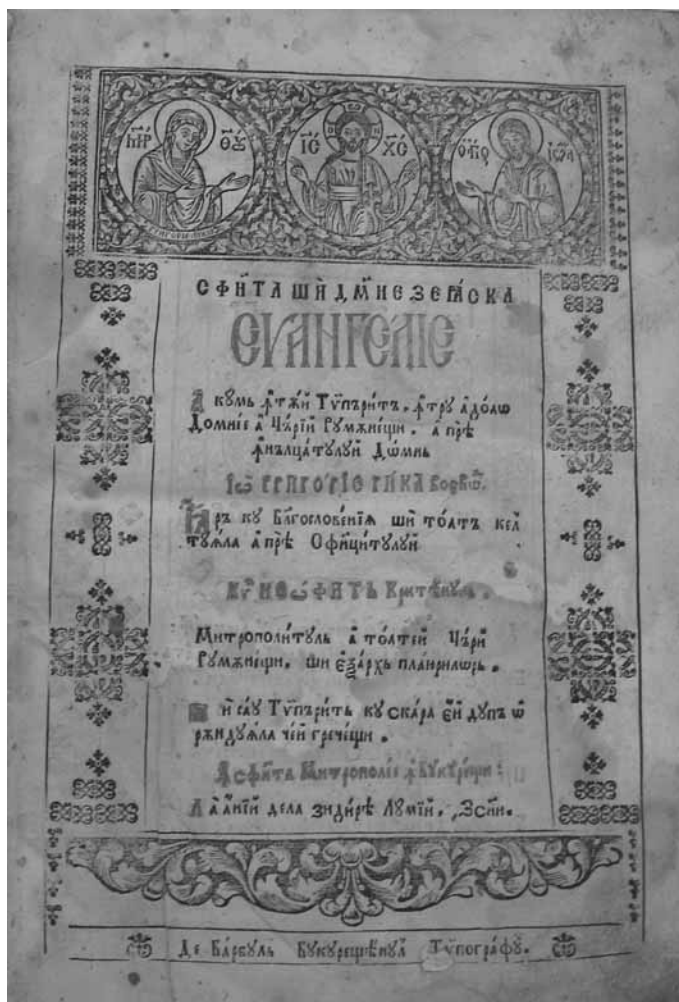 М҃Р Ѳ҃Ѹ І҃С Х҃С
СФН҃ТА ШИ ДМ҃НЕЗЕꙖСКА
ЕѴАНГЕЛІЕ
А кꙋмь ꙟ҆тѫй Тѷпъритъ, ꙟ҆трꙋ а҆ доаѡ
Домніе а҆ Цѣрїй Рꙋмѫнещи, а҆ прѣ
ꙟ҆нълцатꙋлꙋй Домнь
Іѡ҃ ГРИГОРІЕ ГИКА воевѡ҃д.
Ꙗръ кꙋ Бл҃гословенїꙗ ши тоатъ кел
тꙋꙗла а҆ прѣ Ѻфинцитꙋлꙋй
Кѵ҃р НЕѠФИТЬ Критѣнꙋль.
Митрополитꙋль а҆ тоатей Цѣрй
Рꙋмѫнещи, ши еѯархь плаюрилѡрь.
ши сау Тѷпърить кꙋ скара еѵ҃й дꙋпъ ѡ
рѫндꙋꙗла чей гречещи.
ꙟ҆ сфн҃та Митрополіе ꙟ҆ Бꙋкꙋрещи:
Ла а҆нїй дела зидирѣ Лꙋмїй. ҂Зсн҃и.
Де Барбꙋль Бꙋкꙋрещѣнꙋл Тѷпографꙋ.